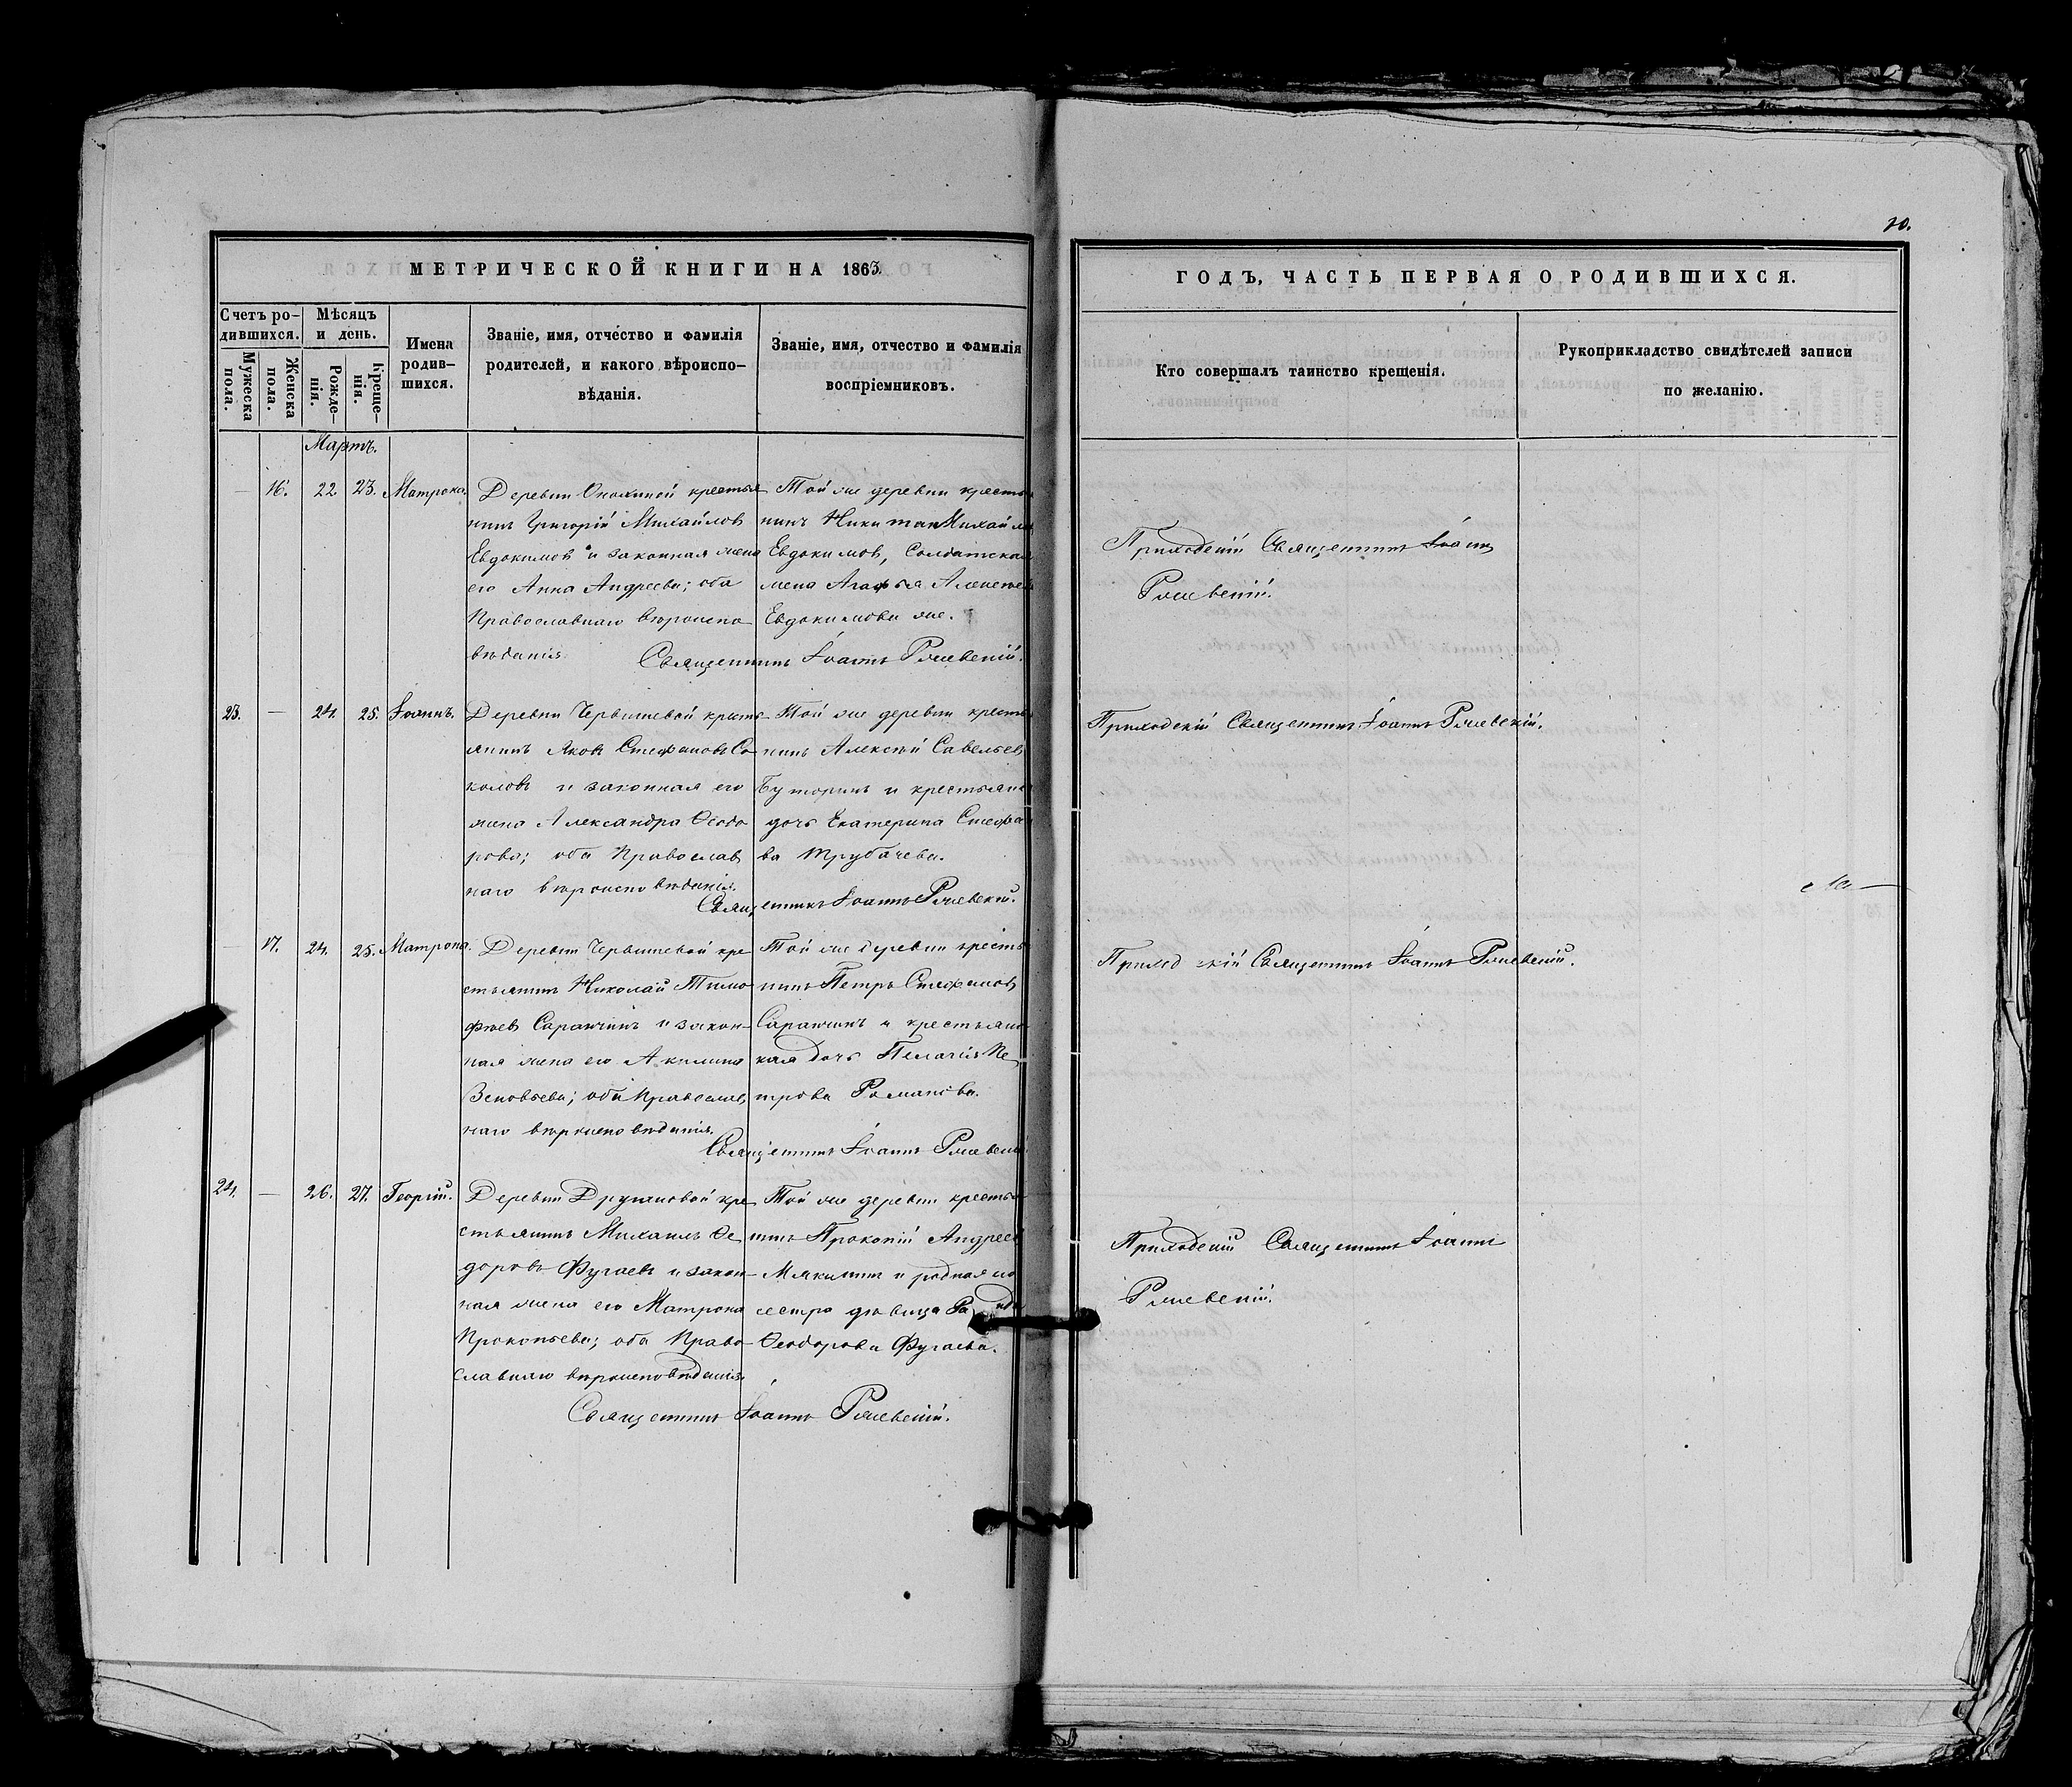 10.
МЕТРИЧЕСКОЙ КНИГИ НА 1863
ГОДЪ, ЧАСТЬ ПЕРВАЯ О РОДИВШИХСЯ.
Счетъ ро-
дившихся.
Мужеска
пола.
Женска
пола.
Мѣсяцъ
и день.
Рожде-
нія.
Креще-
нія.
Имена
родив-
шихся.
Званіе, имя, отчество и фамилія
родителей, и какого вѣроиспо-
вѣданія.
Званіе, имя, отчество и фамилія
воспріемниковъ.
Кто совершалъ таинство крещенія.
Рукоприкладство свидѣтелей записи
по желанію.
Мартъ.
— 16. 22. 23. Матрона.
Деревни крестья
нинъ Григорій Михайловъ
Евдокимовъ и законная жена
его Анна Андреева; оба
Православнаго вѣроиспо
вѣданія
Той же деревни кресть
нинъ Никита Михайло
Евдокимовъ, Солдатская
жена Агафья Алексѣев
Евдокимова же.
Священникъ Іоаннъ
Приходскій Священникъ Іоаннъ
23. — 24. 25. Іоаннъ.
Деревни Червишевой кресть
янинъ Яковъ Стефановъ Со
коловъ и законная его
жена Александра Ѳеодо
рова; оба Православ
наго вѣроисповѣданія.
Той же деревни кресть
нинъ Алексѣй Савельев
Буторинъ и крестьянс
дочь Екатерина Стефа
ва Трубачева.
Священникъ Іоаннъ
Приходскій Священникъ Іоаннъ
— 17. 24. 25. Матрона.
Деревни Червишевой кре
стьянинъ Николай Тимо
фѣевъ Саранчинъ и закон-
ная жена его Акилина
Зеновьева; оба Православ
наго вѣроисповѣданія.
Той же деревни кресть
нинъ Петръ Стефановъ
Саранчинъ и крестьянс
кая дочь Пелагія Пе
трова Романова.
Священникъ Іоаннъ
Приходскій Священникъ Іоаннъ
24. — 26. 27. Георгій.
Деревни Другановой кре
стьянинъ Михаилъ Ѳе
доровъ Фугаевъ и закон
ная жена его Матрона
Прокопьева; оба Право
славнаго вѣроисповѣданія.
Той же деревни кресть
нинъ Прокопій Андреев
Мякишинъ и родная
сестра дѣвица
Ѳеодорова Фугаева.
Священникъ Іоаннъ
Приходскій Священникъ Іоаннъ